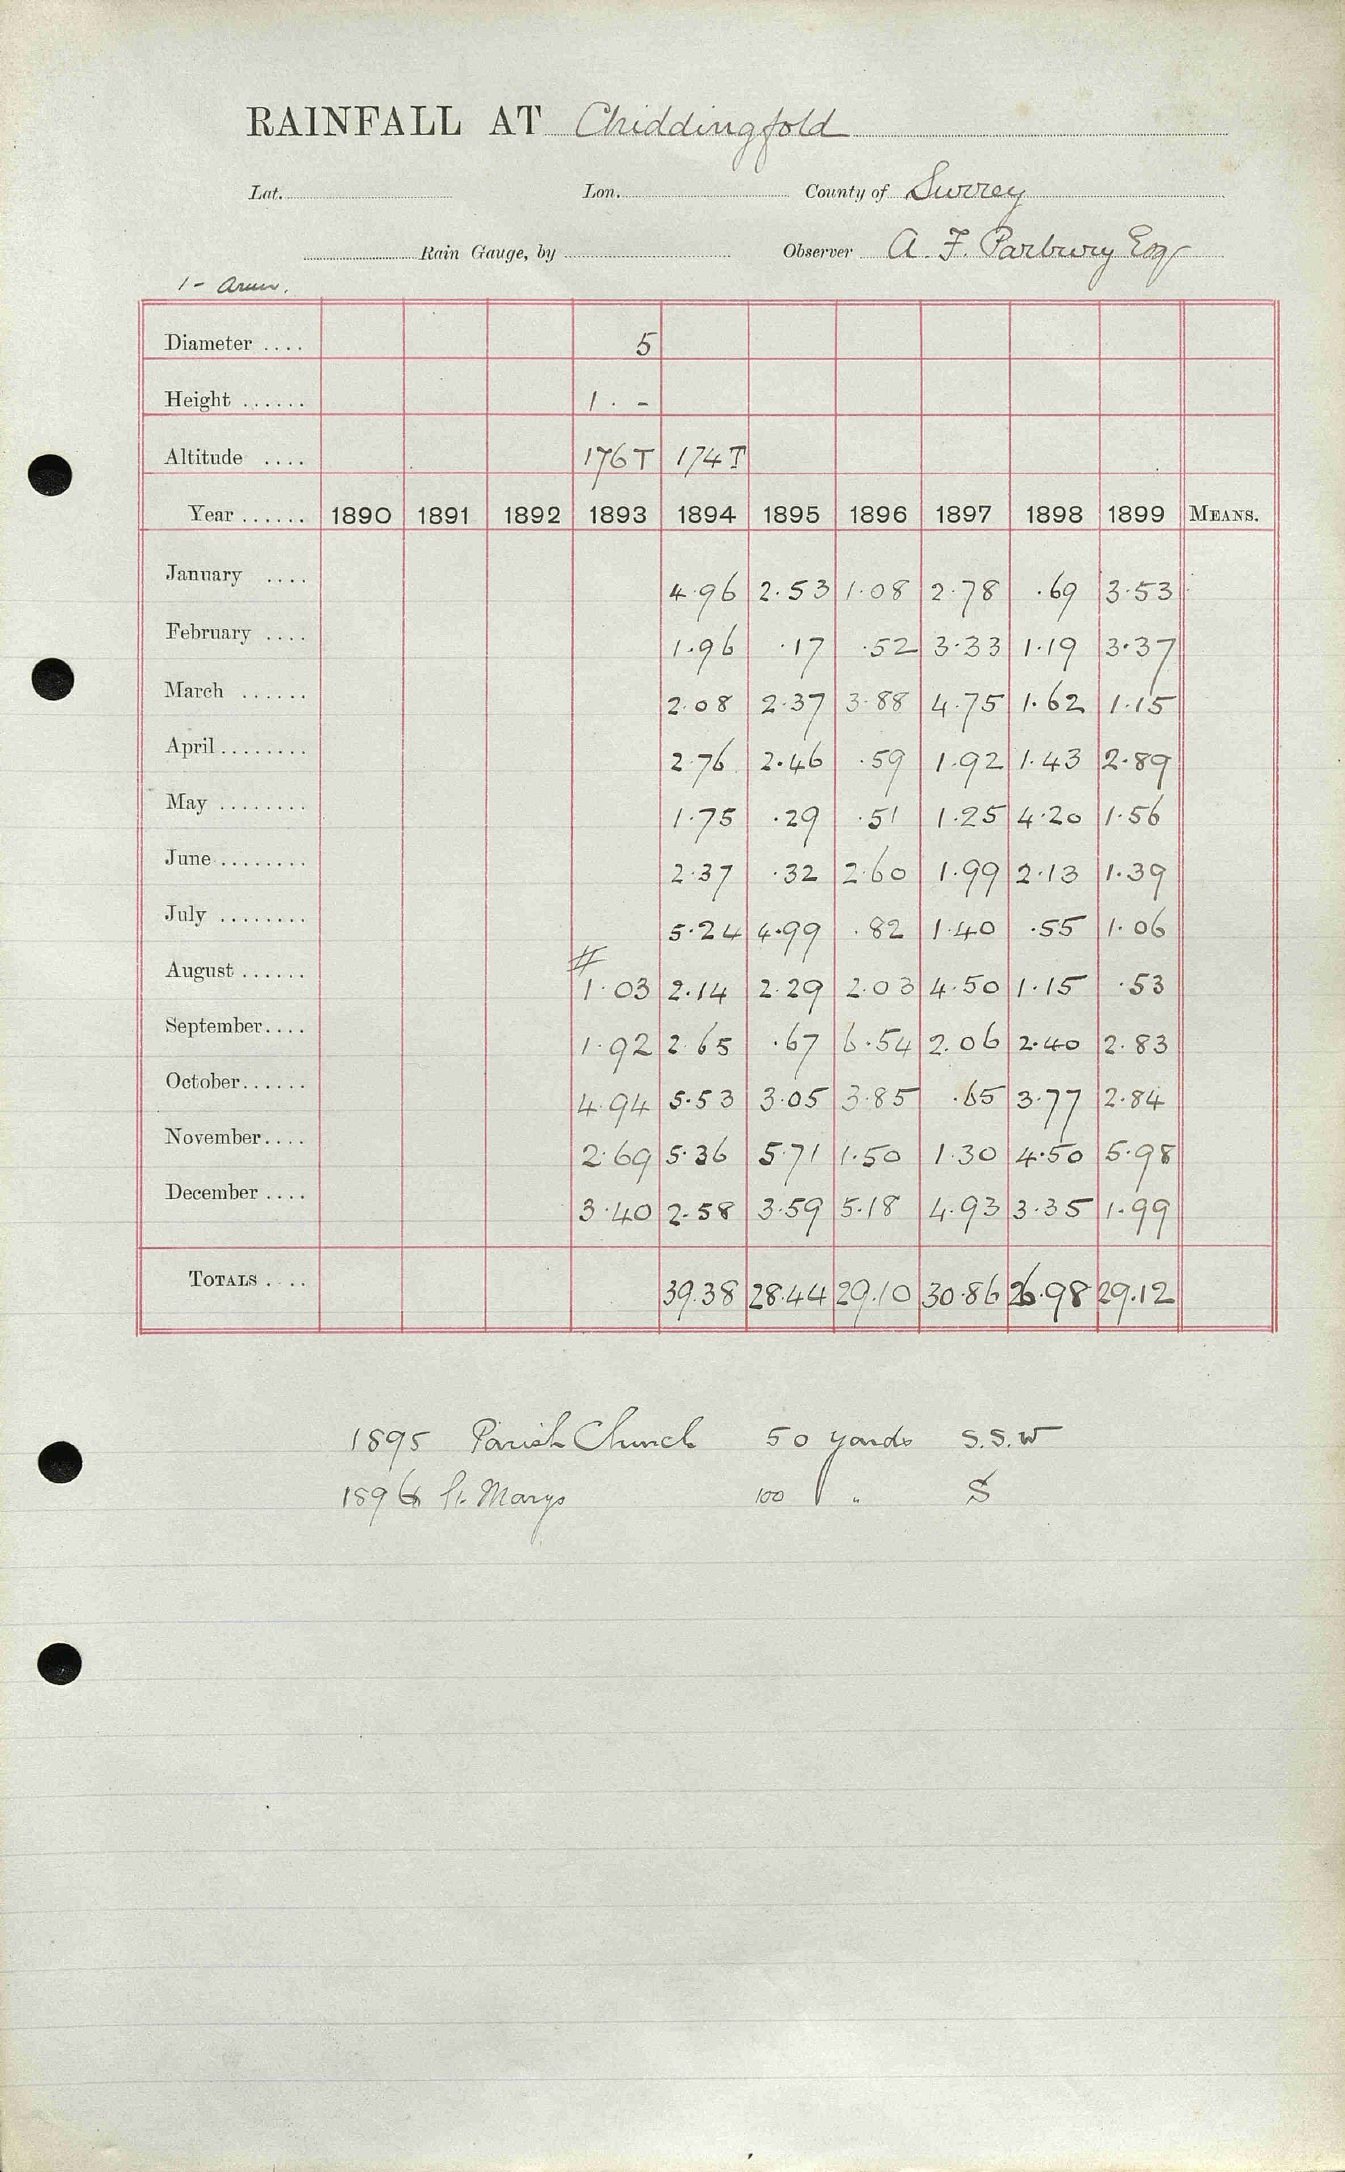 RAINFALL AT Chiddingfold
Lat. Lon. County of Surrey
Rain Gauge, by Observer A. F. Parbury Esq
1 - Arun.
Diameter .... 5
Height ...... 1 . -
Altitude .... 176T 174T
Year ...... 1890 1891 1892 1893 1894 1895 1896 1897 1898 1899 MEANS.
January .... 4.96 2.53 1.08 2.78 .69 3.53
February .... 1.96 .17 .52 3.33 1.19 3.37
March ...... 2.08 2.37 3.88 4.75 1.62 1.15
April ........ 2.76 2.46 .59 1.92 1.43 2.89
May ........ 1.75 .29 .51 1.25 4.20 1.56
June ........ 2.37 .32 2.60 1.99 2.13 1.39
July ........ 5.24 4.99 .82 1.40 .55 1.06
#
August ...... 1.03 2.14 2.29 2.03 4.50 1.15 .53
September.... 1.92 2.65 .67 6.54 2.06 2.40 2.83
October...... 4.94 5.53 3.05 3.85 .65 3.77 2.84
November.... 2.69 5.36 5.71 1.50 1.30 4.50 5.98
December .... 3.40 2.58 3.59 5.18 4.93 3.35 1.99
TOTALS .... 39.38 28.44 29.10 30.86 26.98 29.12
1895 Parish Church 50 yards S.S.W
1896 St. Marys 100 " " S